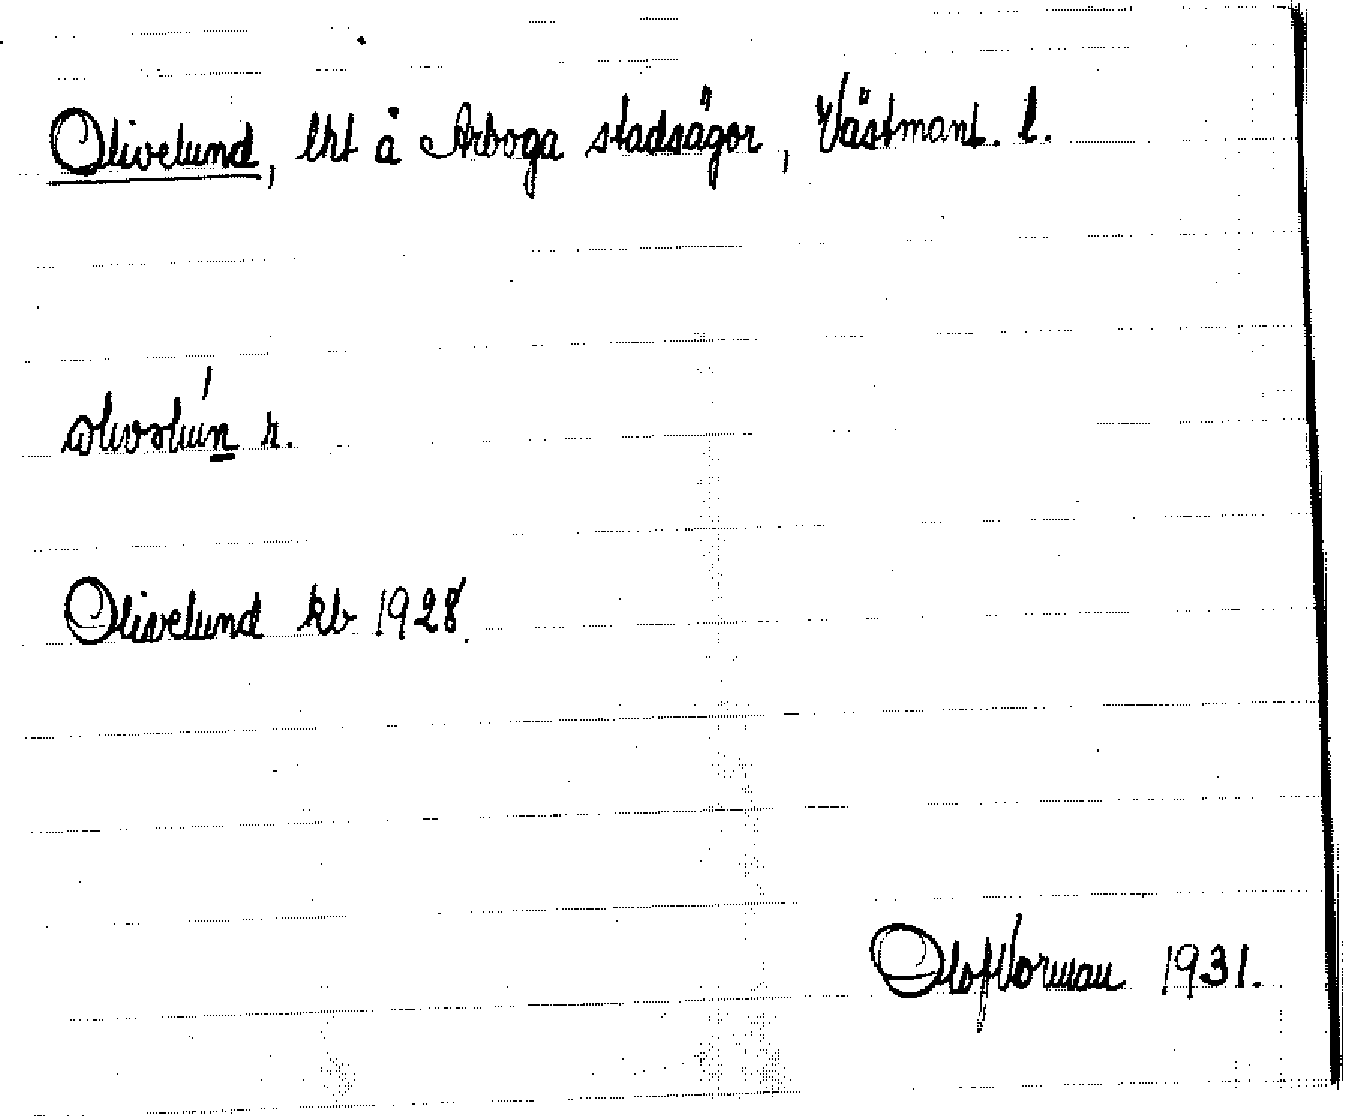 Olivelund, lht å Arboga stadsägor, Västmanl. l.
r.
Olivelund kb 1928.
Olof Vorman 1931.